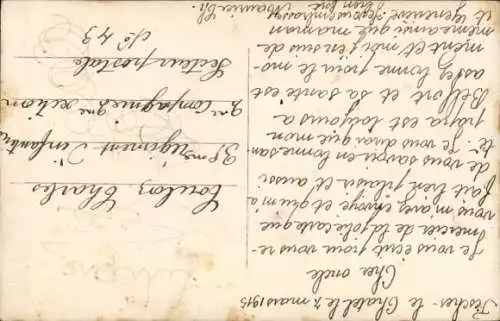 Pesches - le Chatel le 7 mars 1915
Cher oncle
Je vous ecrit pour vous re-
mercier de la jolie carte que
vous m'avez envoyé et qui m'a
fait bien plaisir et aussi
de vous savoir en bonne san-
té. Je vous dirai que mon
papa est toujours a
Belfort et sa santé est
assez bonne pour le mo-
ment et moi j'en suis de
même ainsi que maman
et Geneviève. Je vous embrasse
bien fort Maurice Ch.
Coulon Charles
35me régiment d'infanterie
2me compagnie 2me section
Secteur postale
No 43